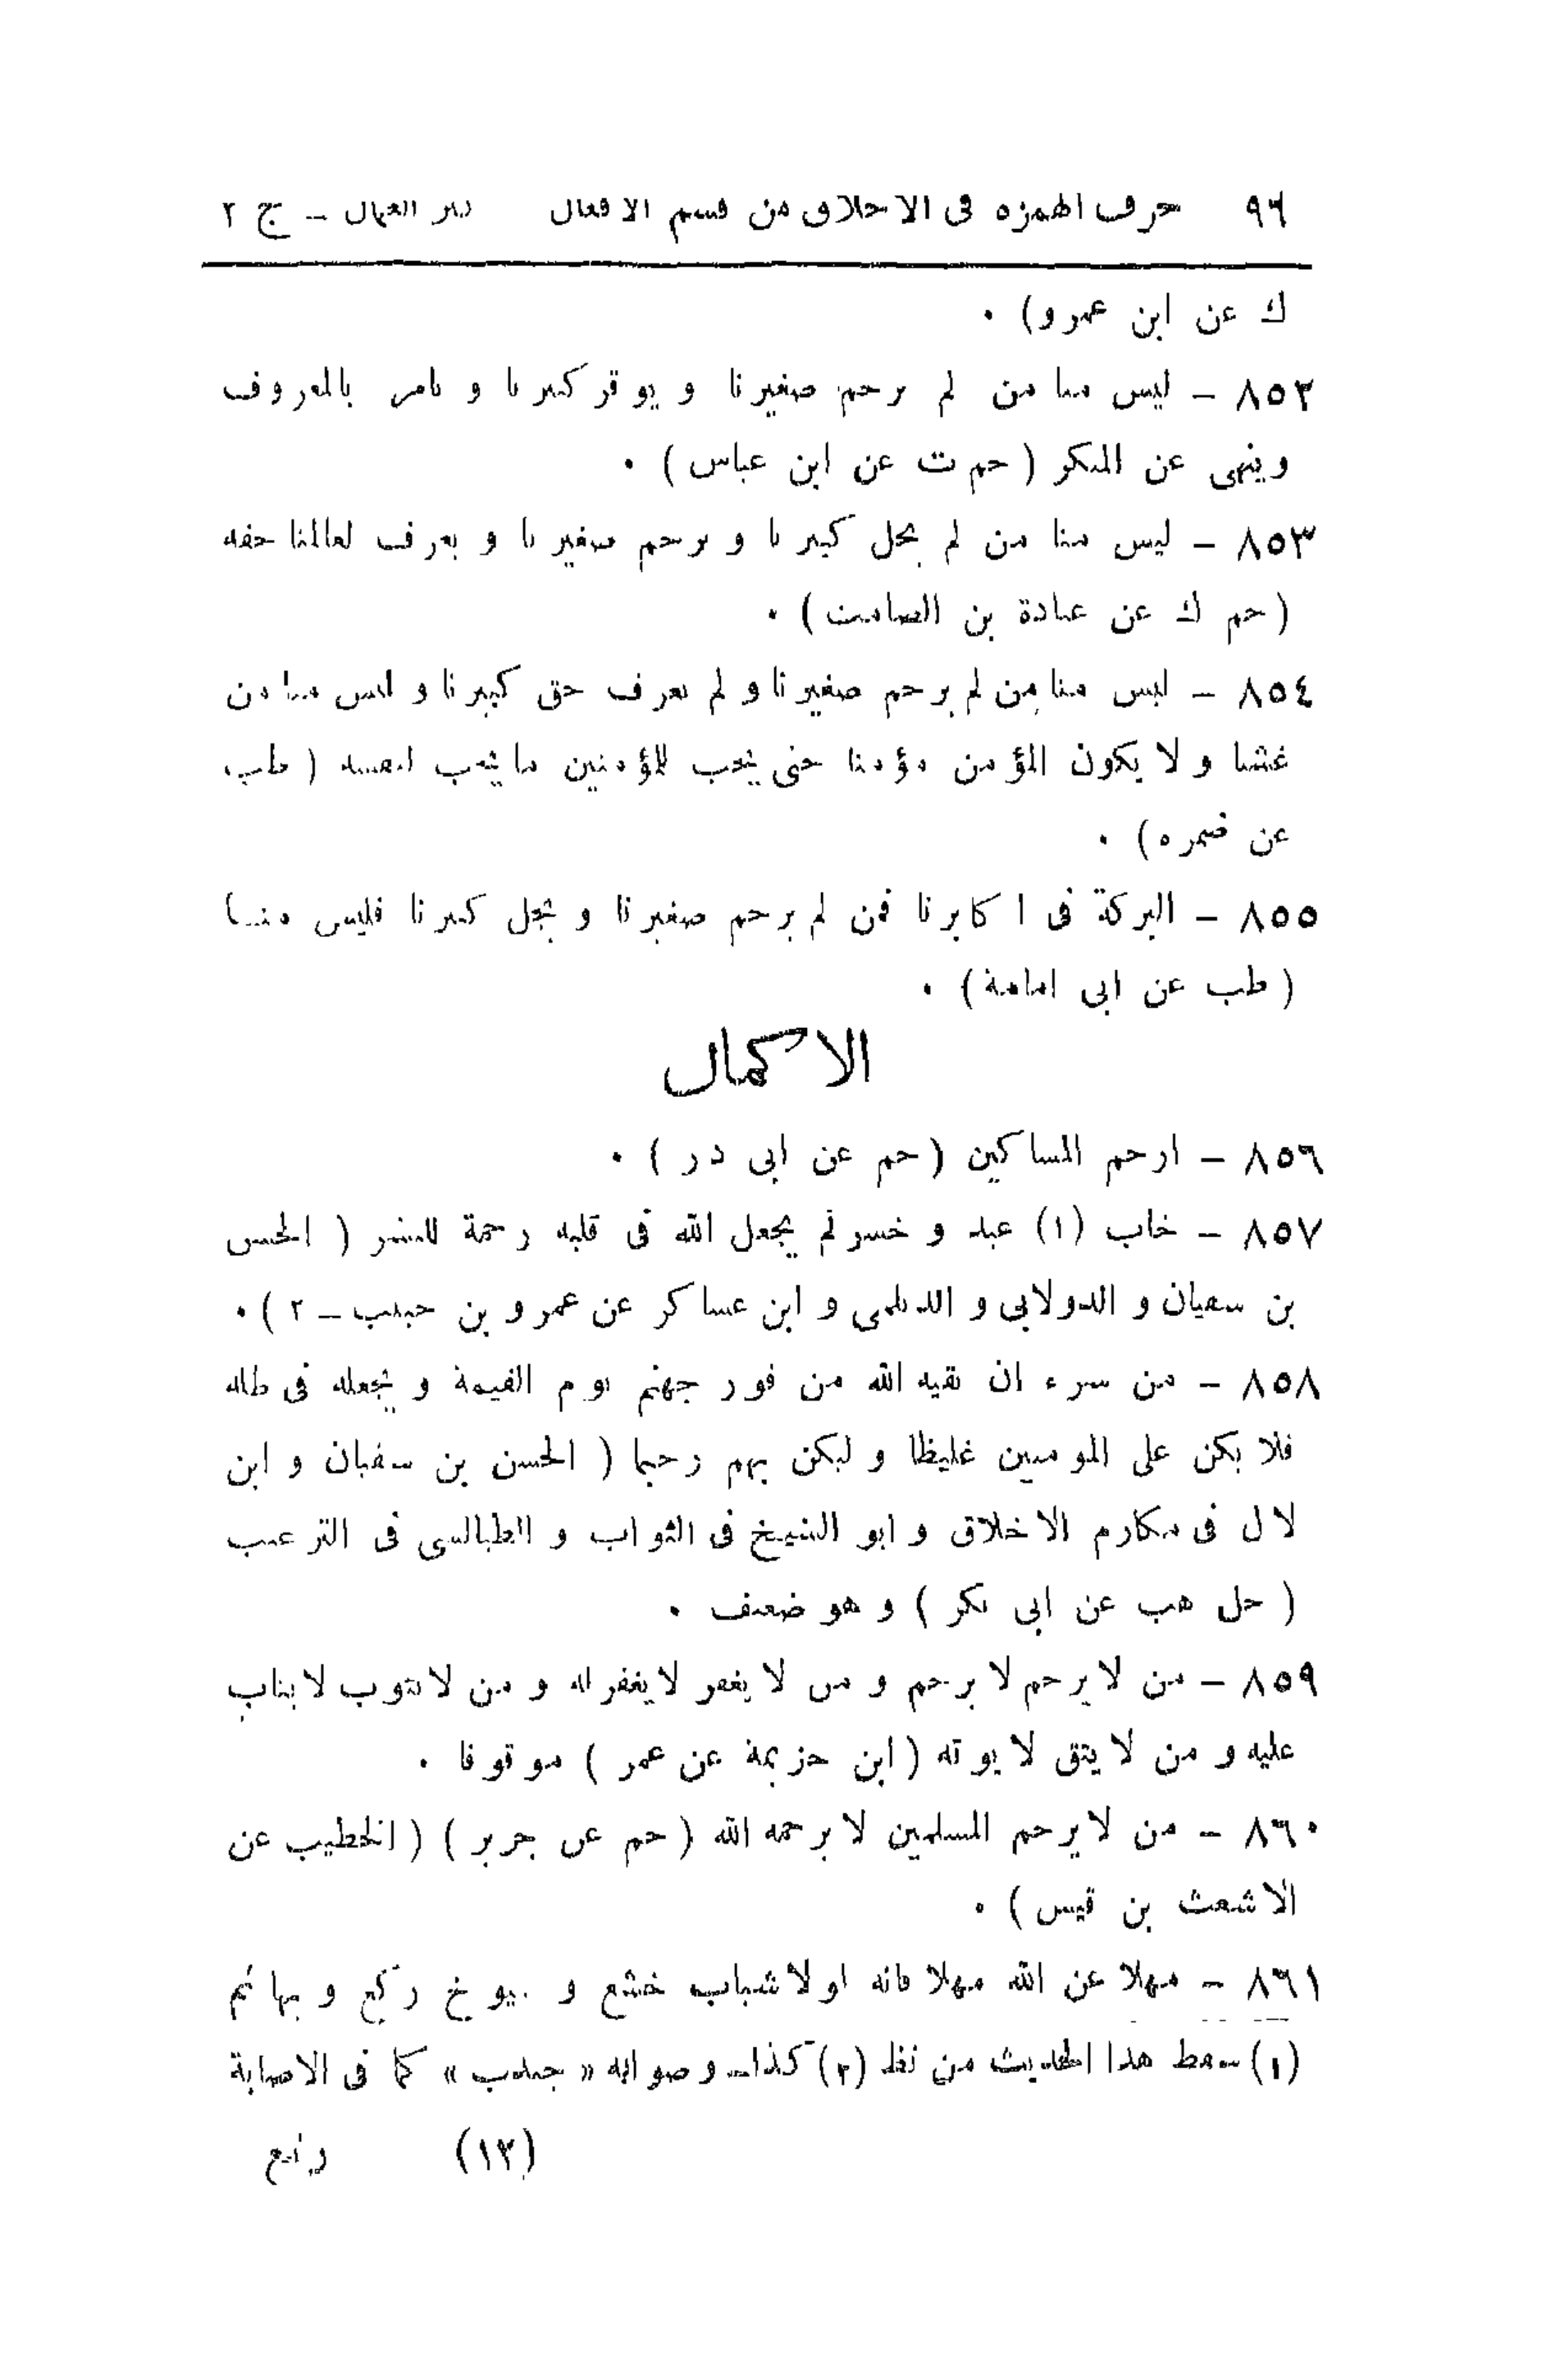 ٩٦ حرف الهمزه فى الاخلاق من قسم الافعال كنز العمال – ج ٢
ك عن ابن عمرو) .
٨٥٢ – ليس منا من لم يرحم صغيرنا و يوقر كبيرنا و يامر بالمعروف
وينهى عن المنكر ( حم ت عن ابن عباس ) .
٨٥٣ – ليس منا من لم يجل كبيرنا و يرحم صغيرنا و يعرف لعالمنا حقه
( حم ك عن عبادة بن الصامت ) .
٨٥٤ – ليس منا من لم يرحم صغيرنا و لم يعرف حق كبيرنا و ليس منا من
غشنا و لا يكون المؤمن مؤمنا حتى يحب للمؤمنين ما يحب لنفسه ( طب
عن ضمره ) .
٨٥٥ – البركة فى اكابرنا فمن لم يرحم صغيرنا و يجل كبيرنا فليس منا
( طب عن ابى امامة ) .
الاكمال
٨٥٦ – ارحم المساكين ( حم عن ابى ذر ) .
٨٥٧ – خاب (١) عبد و خسر لم يجعل الله فى قلبه رحمة للبشر ( الحسن
بن سفيان و الدولابى و الديلمى و ابن عساكر عن عمرو بن حبيب – ٢ ) .
٨٥٨ – من سره ان يقيه الله من فور جهنم يوم القيمة و يجعله فى ظله
فلا يكن على المومنين غليظا و ليكن بهم رحيما ( الحسن بن سفيان و ابن
لال فى مكارم الاخلاق و ابو الشيخ فى الثواب و الطيالسى فى الترغيب
( حل هب عن ابى بكر ) و هو ضعيف .
٨٥٩ – من لا يرحم لا يرحم و من لا يغفر لا يغفر له و من لا يتوب لا يتاب
عليه و من لا يتق لا يوقه ( ابن خزيمة عن عمر ) موقوفا .
٨٦٠ – من لا يرحم المسلمين لا يرحمه الله ( حم عن جرير ) ( الخطيب عن
الاشعث بن قيس ) .
٨٦١ – مهلا عن الله مهلا فانه لولا شباب خشع و شيوخ ركع و بهائم
(١) سقط هذا الحديث من نظ (٢) كذا – و صوابه « جندب » كما فى الاصابة
(١٢) رتع